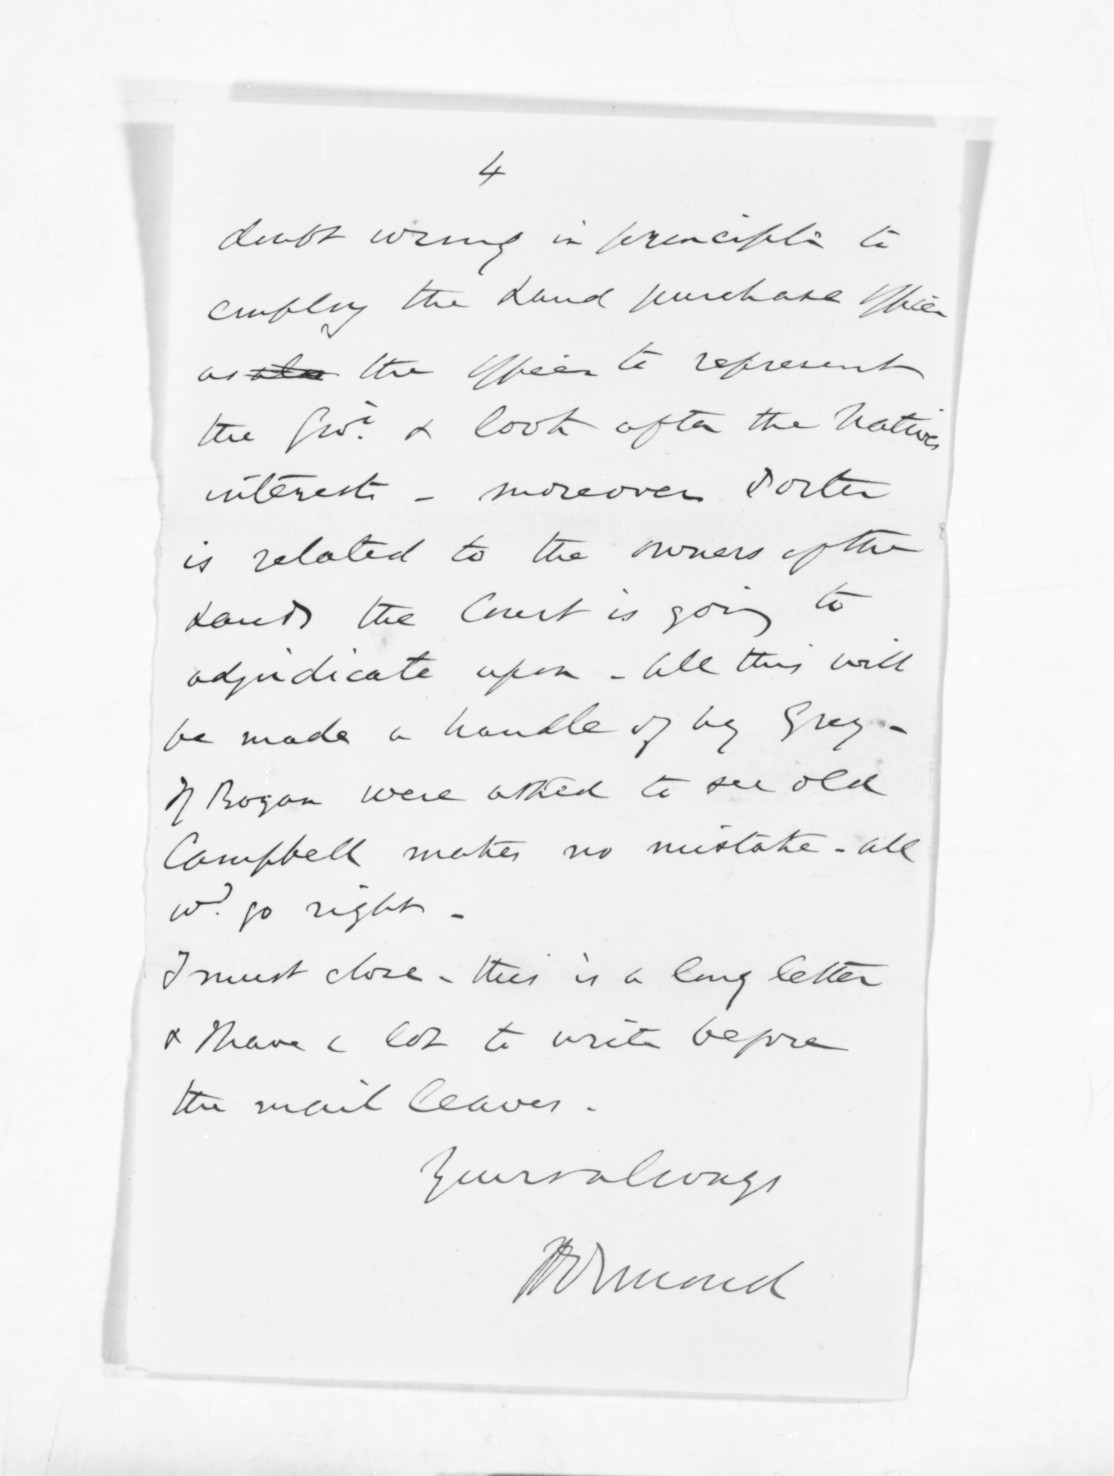 4
doubt wrong in principle to
employ the Land purchase Officer
as also the Officer to represent
the Govt. & look after the Natives
interests - moreover Porter
is related to the owners of the
Lands the Court is going to
adjudicate upon - all this will
be made a handle of by Grey -
If Rogan were asked to see old
Campbell makes no mistake - all
wd. go right -
I must close - this is a long letter
& I have a lot to write before
the mail leaves -
Yours always
JD Ormond